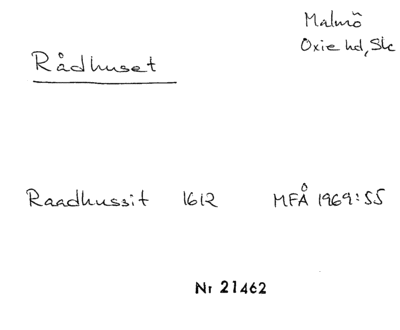 Malmö
Oxie hd, Sk
Rådhuset
Raadhussit 1612 MFÅ 1969:55
Nr 21462